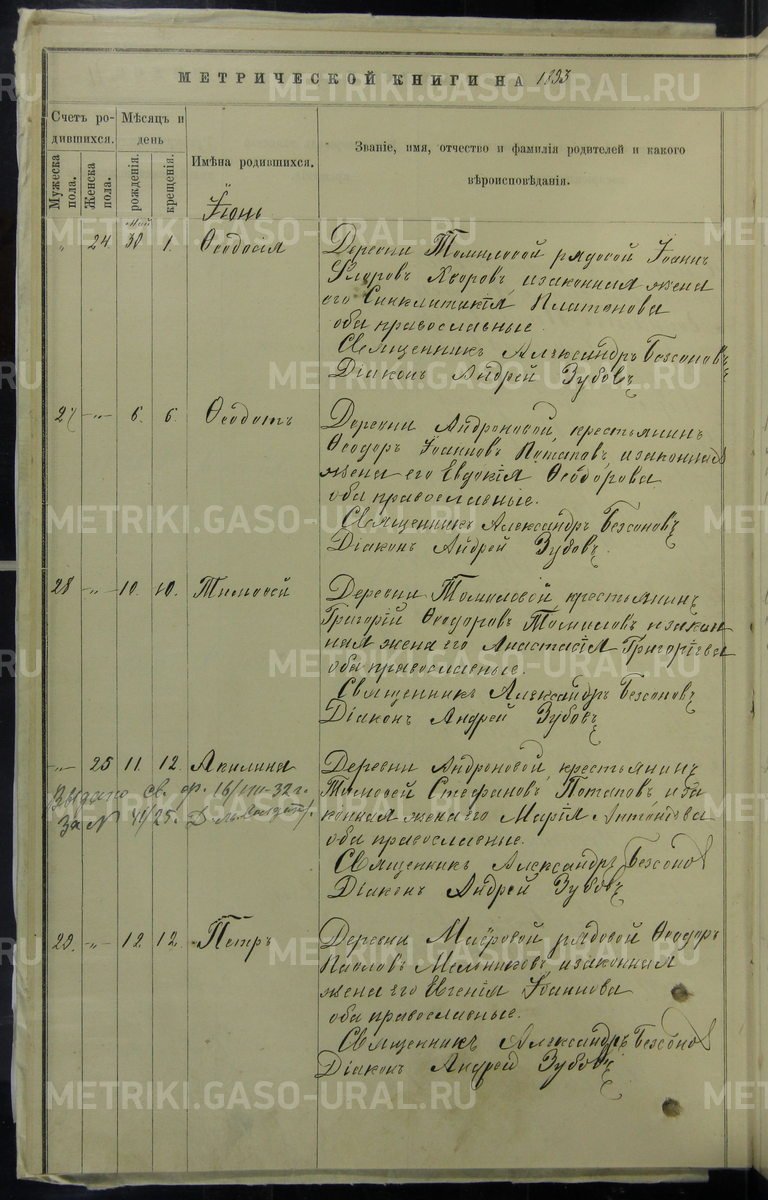 МЕТРИЧЕСКОЙ КНИГИ НА 1893
Счетъ ро-
дившихся.
Мужеска пола.
Женска пола.
Мѣсяцъ и день
рожденія.
крещенія.
Имѣна родившихся.
Званіе, имя, отчество и фамилія родителей и какого
вѣроисповѣданія.
Іюнь
май
" 24 30 1. Ѳеодосія
Деревни Томиловой рядовой Іоаннъ
Флоровъ изаконная жена
его Синклитикія Платонова
оба православные.
Священникъ Александръ Безсоновъ
Діаконъ Андрей Зубовъ
27 -"- 6. 6. Ѳеодотъ
Деревни Андроновой, крестьянинъ
Ѳеодоръ Іоанновъ Потаповъ, изаконная
жена его Евдокія Ѳеодорова
оба православные.
Священникъ Александръ Безсоновъ
Діаконъ Андрей Зубовъ
28 -"- 10. 10. Тимоѳей
Деревни Томиловой крестьянинъ
Григорій Ѳеодоровъ Томиловъ изакон
ная жена его Анастасія Григоріева
оба православные.
Священникъ Александръ Безсоновъ
Діаконъ Андрей Зубовъ
-"- 25 11. 12. Акилина
Деревни Андроновой, крестьянинъ
Тимоѳей Стефановъ Потаповъ, иза
конная жена его Марія Антонова
оба православные.
Священникъ Александръ Безсонов
Діаконъ Андрей Зубовъ
Выдано св. ф. 16/VIII-32 г.
За № 41/25.
29. -"- 12. 12. Петръ
Деревни рядовой Ѳеодоръ
Павловъ Мельниковъ, изаконная
жена его Евгенія Іоаннова
оба православные.
Священникъ Александръ Безсонов
Діаконъ Андрей Зубовъ
METRIKI.GASO-URAL.RU